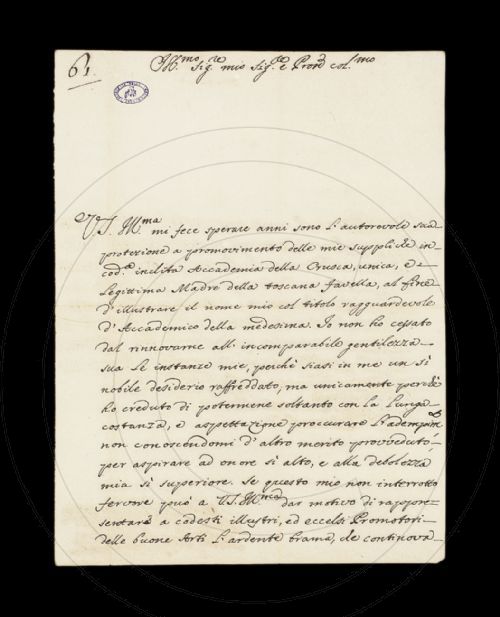 61
Ill.mo Sig.re mio Sig.re e Pron col.mo
V. S. Ill.ma mi fece sperare anni sono l'autorevole sua
protezione a promovimento delle mie suppliche in
cod.a inclita Accademia della Crusca, unica, e
legittima Madre della toscana favella, al fine
d'illustrare il nome mio col titolo ragguardevole
d'Accademico della medesima. Io non ho cessato
dal rinnovarne all'incomparabile gentilezza
sua le instanze mie, perchè siasi in me un sì
nobile desiderio raffreddato, ma unicamente perchè
ho creduto di potermene soltanto con la lunga
costanza, e aspettazione proccurare l'adempim.to
non conoscendomi d'altro merito provveduto
per aspirare ad onore sì alto, e alla debolezza
mia sì superiore. Se questo mio non interrotto
fervore può a V. S. Ill.ma dar motivo di rappre-
sentare a codesti illustri, ed eccelsi Promotori
delle buone Arti l'ardente brama, che continova